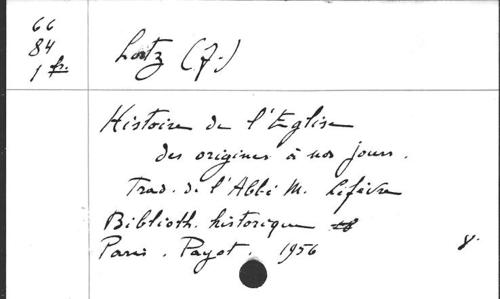 66
84
1 fr.
Lortz (J.)
Histoire de l'Eglise
des origines à nos jours.
Trad. de l'Abbé M. Lefèvre
Biblioth. historique
Paris. Payot. 1956
8.